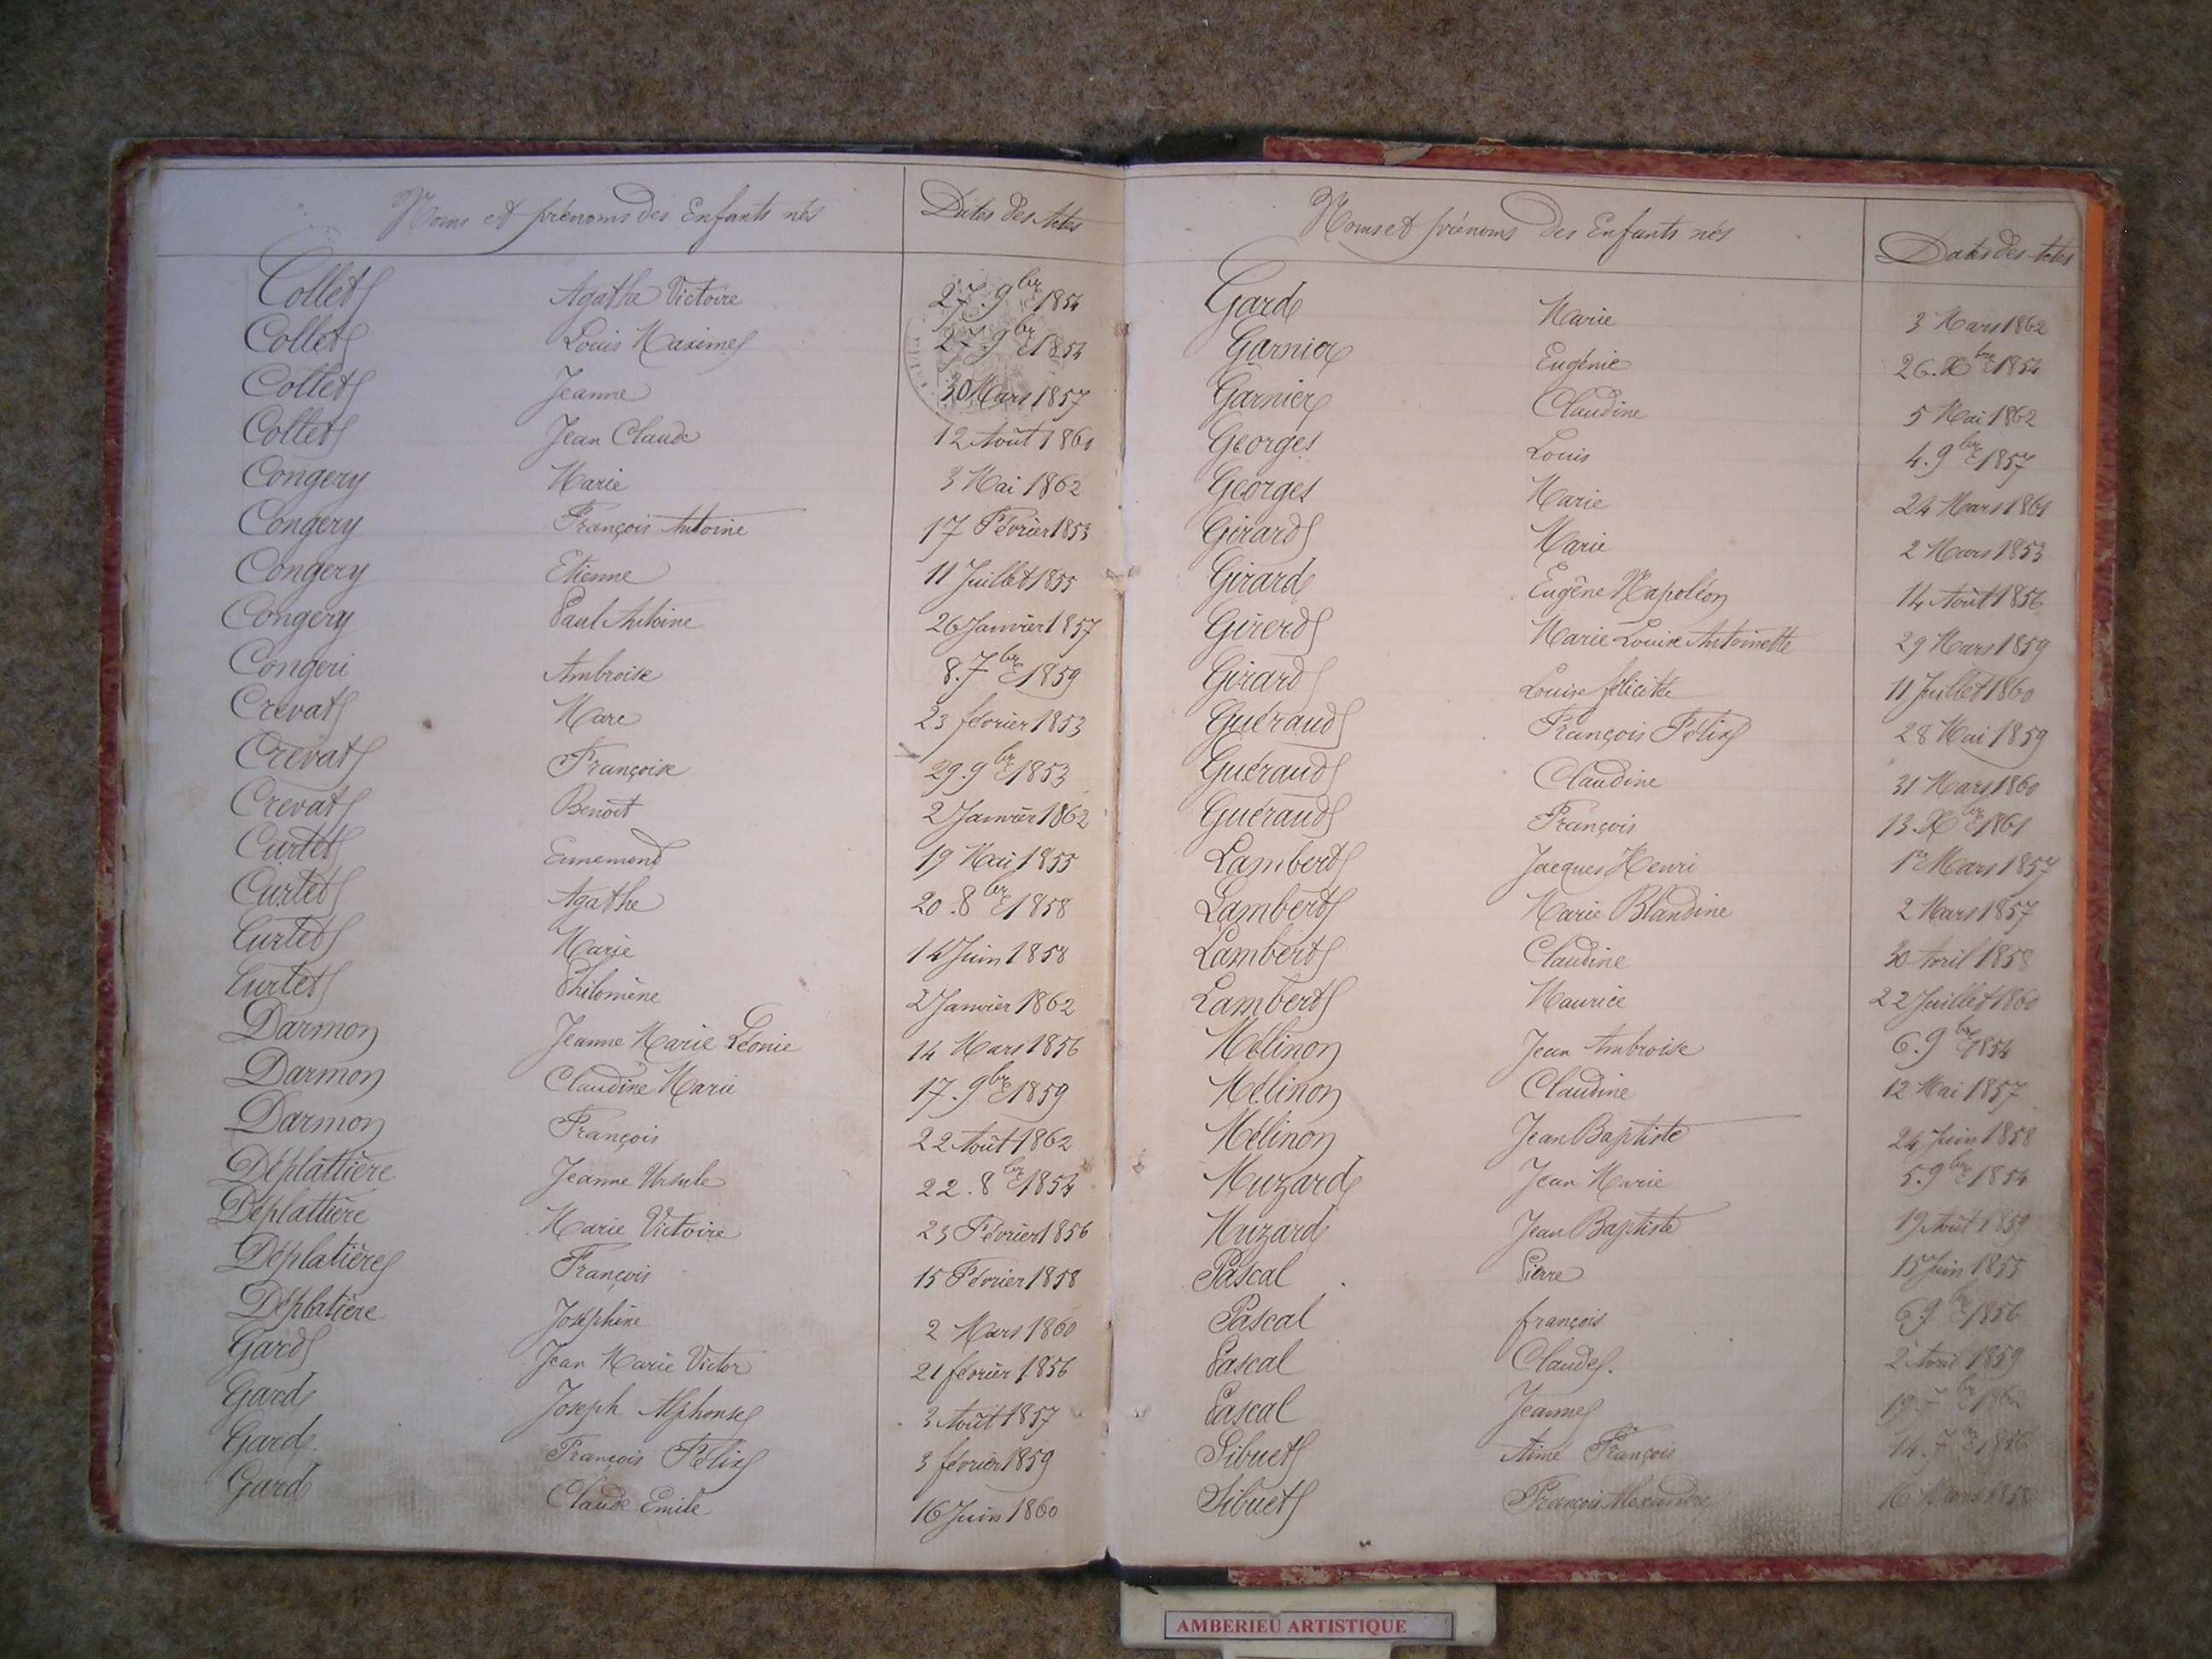 Noms et prénoms des Enfants nés Dates des Actes
Collet Agathe Victoire 27. 9bre 1854
Collet Louis Maxime 27. 9bre 1854
Collet Jeanne 30 Mars 1857
Collet Jean Claude 12 Août 1860
Congery Marie 3 Mai 1862
Congery François Antoine 17 Février 1853
Congery Etienne 11 Juillet 1855
Congery Paul Antoine 26 Janvier 1857
Congeri Ambroise 8. 7bre 1859
Crevat Marc 23 février 1853
Crevat Françoise 29. 9bre 1853
Crevat Benoit 2 Janvier 1862
Curtet Ennemond 19 Mai 1855
Curtet Agathe 20. 8bre 1858
Curtet Marie 14 Juin 1858
Curtet Philomène 2 Janvier 1862
Darmon Jeanne Marie Léonie 14 Mars 1856
Darmon Claudine Marie 17. 9bre 1859
Darmon François 22 Août 1862
Déplattière Jeanne Ursule 22. 8bre 1854
Déplattière Marie Victoire 23 Février 1856
Déplatière François 15 Février 1858
Déplatière Joséphine 2 Mars 1860
Gard Jean Marie Victor 21 février 1856
Gard Joseph Alphonse 3 Août 1857
Gard François Félix 3 février 1859
Gard Claude Emile 16 Juin 1860
Noms et prénoms des Enfants nés Dates des Actes
Gard Marie 3 Mars 1862
Garnier Eugénie 26. Xbre 1854
Garnier Claudine 5 Mai 1862
Georges Louis 4. 9bre 1857
Georges Marie 24 Mars 1861
Girard Marie 2 Mars 1853
Girard Eugène Napoléon 14 Août 1856
Girerd Marie Louise Antoinette 29 Mars 1859
Girard Louise félicitée 11 Juillet 1860
Guéraud François Félix 28 Mai 1859
Guéraud Claudine 31 Mars 1860
Guéraud François 13. Xbre 1861
Lambert Jacques Henri 1er Mars 1857
Lambert Marie Blandine 2 Mars 1857
Lambert Claudine 30 Avril 1858
Lambert Maurice 22 Juillet 1860
Mélinon Jean Ambroise 6. 9bre 1854
Mélinon Claudine 12 Mai 1857
Mélinon Jean Baptiste 24 Juin 1858
Muzard Jean Marie 5. 9bre 1854
Muzard Jean Baptiste 19 Août 1859
Pascal Pierre 15 Juin 1855
Pascal françois 6 9bre 1856
Pascal Claude. 2 Avril 1859
Pascal Jeanne 7bre 1862
Sibuet Aimé François 14. 7bre
Sibuet François Alexandre 16 Mars 1858
AMBERIEU ARTISTIQUE